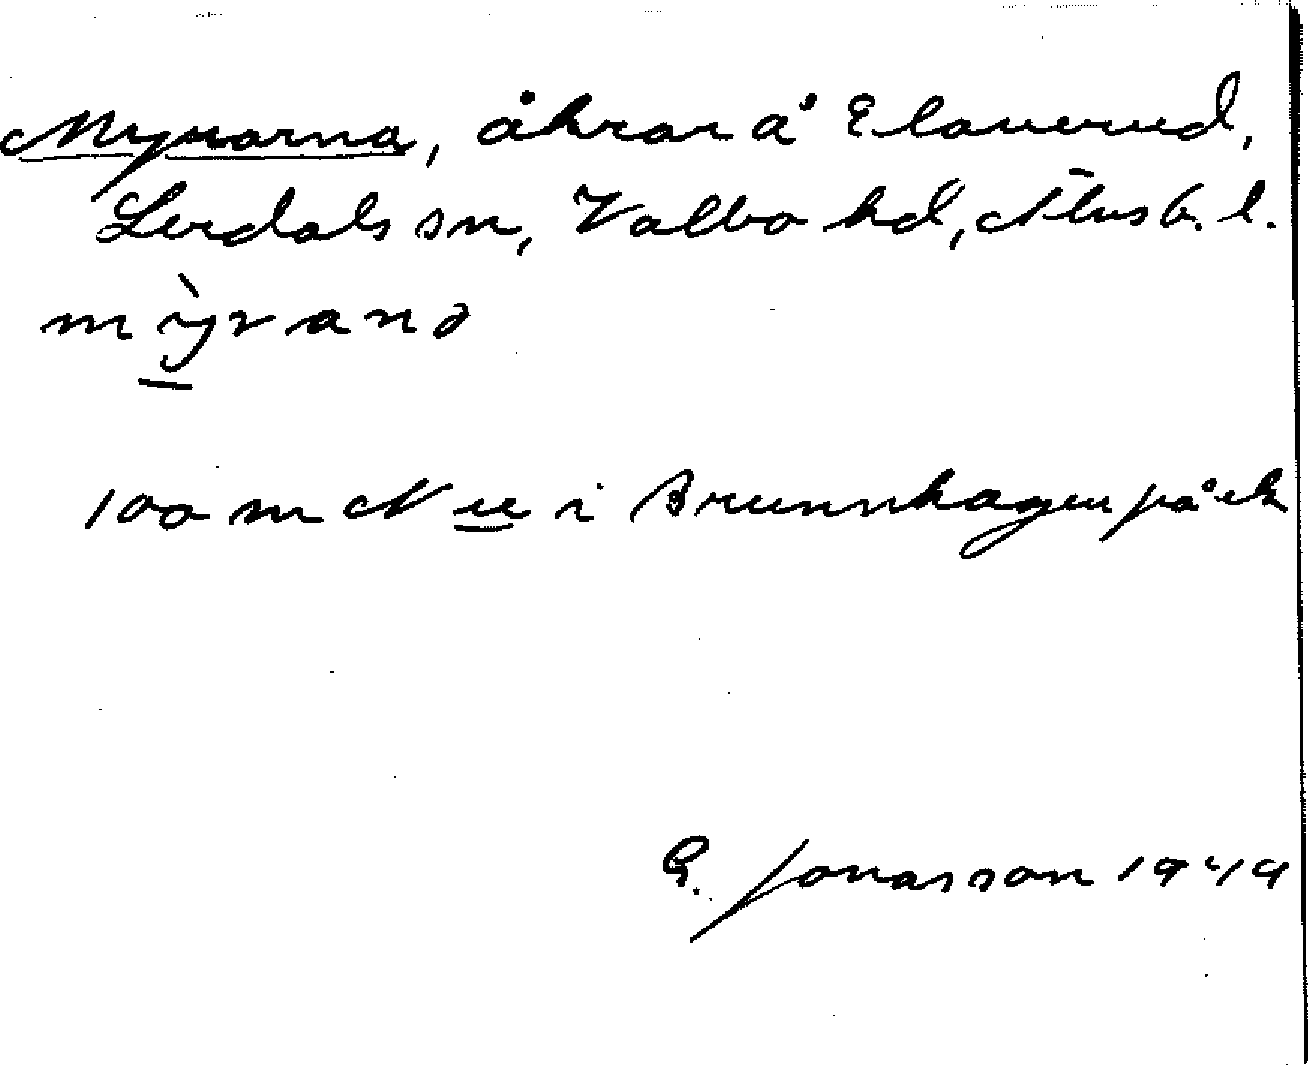 Myrarna, åkrar å Elaverud,
Lerdals sn, Valbo hd, Älvsb. l.
mỳranə
100 m N i Brunnhagen på ek
G. Jonasson 1949